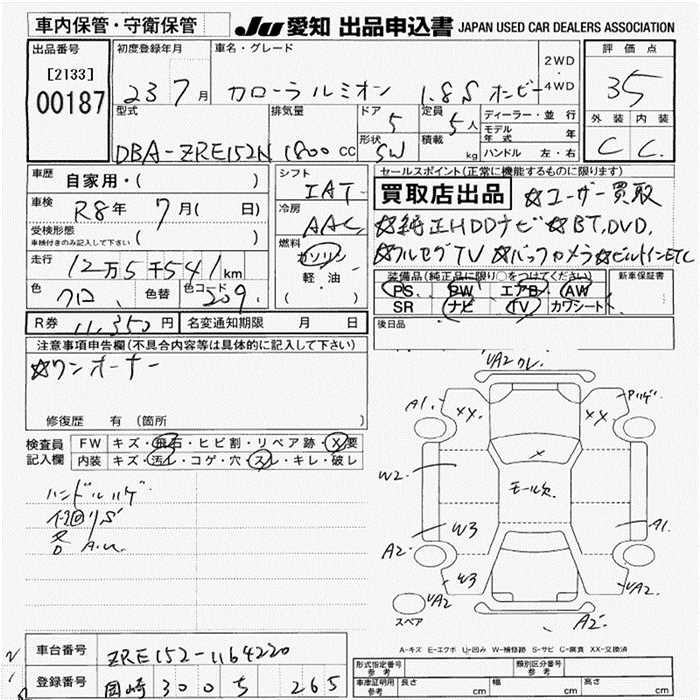 車内保管・守衛保管
JU 愛知 出品申込書 JAPAN USED CAR DEALERS ASSOCIATION
出品番号 初度登録年月 車名・グレード 2WD・4WD 評価点
[2133] 00187 23 7月 カローラルミオン 1.8S オンビー 35
型式 排気量 ドア 5 定員 5人 ディーラー・並行 外装 内装
モデル年式 年
DBA-ZRE152N 1800 CC 形状 SW 積載 kg ハンドル 左・右 C C
車歴 自家用・( ) シフト IAT セールスポイント(正常に機能するものに限ります)
車検 R8年 7月( 日) 冷房 AAC 買取店出品 ☆ユーザー買取
受検形態 車検付きのみ記入して下さい ( ) ☆純正HDDナビ☆BT,DVD,
燃料 ガソリン 軽・油 ( ) ☆フルセグTV ☆バックカメラ☆ビルトインETC
走行 12万5千541km 装備品(純正品に限り○をつけてください) 新車保証書
色 クロ 色替 色コード 209 PS PW エアB AW
SR ナビ TV カワシート
R券 11,350円 名変通知期限 月 日 後日品
注意事項申告欄(不具合内容等は具体的に記入して下さい)
☆ワンオーナー
修復歴 有 (箇所
検査員記入欄 FW キズ・飛石・ヒビ割・リペア跡・X要
内装 キズ・汚レ・コゲ・穴・スレ・キレ・破レ
ハンドルハゲ
A1 XX XX
W2 モール欠
W3 A1
A2 W3
A2
A2
スペア
A-キズ E-エクボ U-凹み W-補修跡 S-サビ C-腐食 XX-交換済
車台番号 ZRE152-1164220
登録番号 岡崎 300 ち 265
形式指定番号 参考 類別区分番号 参考
車庫証明用 参考 長さ cm 幅 cm 高さ cm